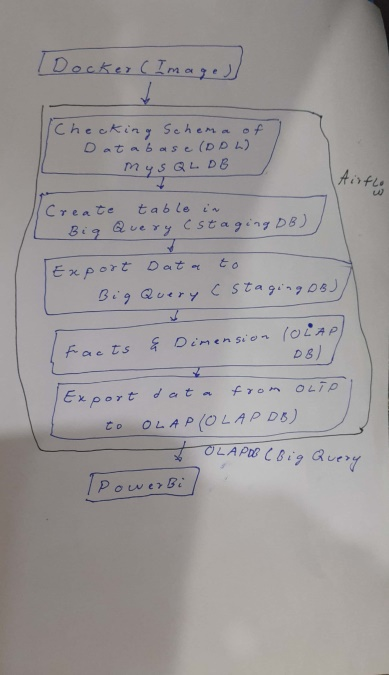 Docker (Image)
Checking Schema of
Database (DDL)
MySQL DB
Airflow
Create table in
Big Query (Staging DB)
Export Data to
Big Query (Staging DB)
Facts & Dimension (OLAP
DB)
Export data from OLTP
to OLAP (OLAP DB)
OLAPDB (Big Query
PowerBi